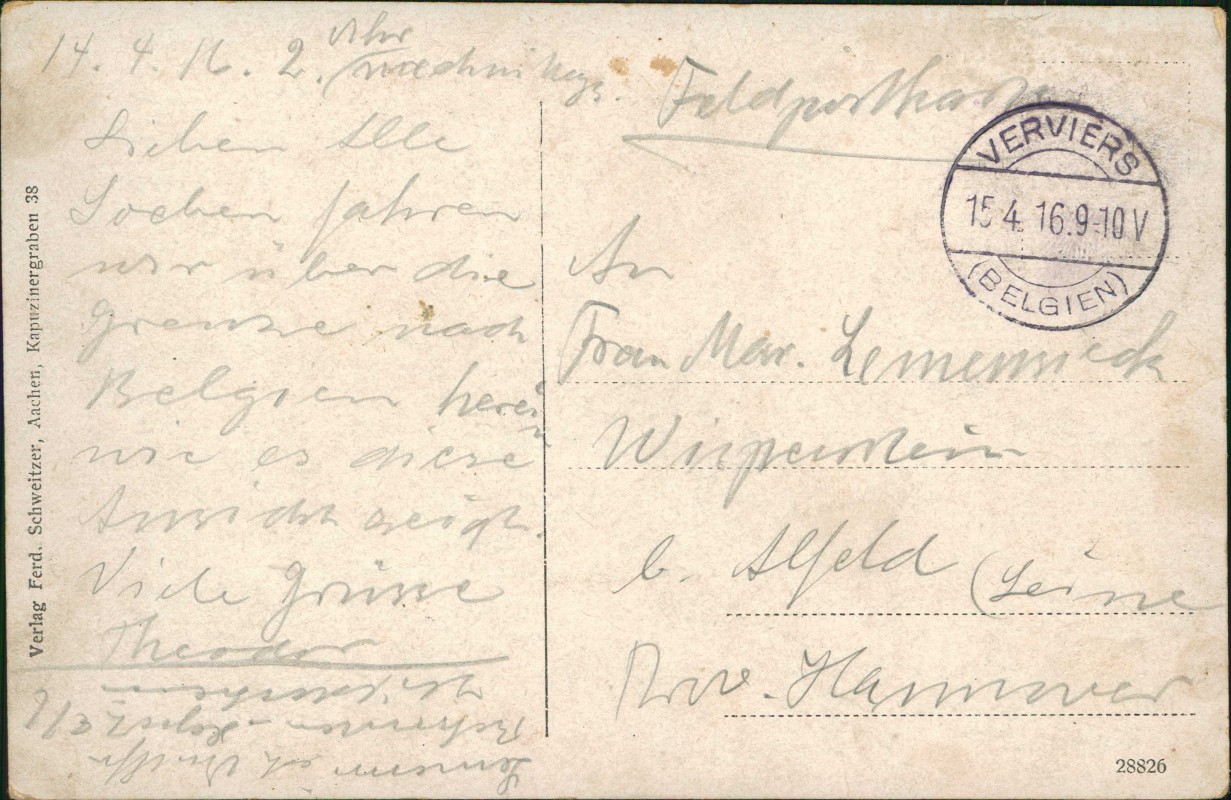 14. 4. 16. 2. Uhr nachmittags.
Lieben Alle
Soeben fahren
wir über die
Grenze nach
Belgien herein
wie es diese
Ansicht zeigt.
Viele Grüsse
Theodor
Feldpostkarte
VERVIERS
15 4. 16. 9-10 V
(BELGIEN)
An
Frau Mar.
Wispenstein
b. Alfeld (Leine
Prov. Hannover
Verlag Ferd. Schweitzer, Aachen, Kapuzinergraben 38
28826